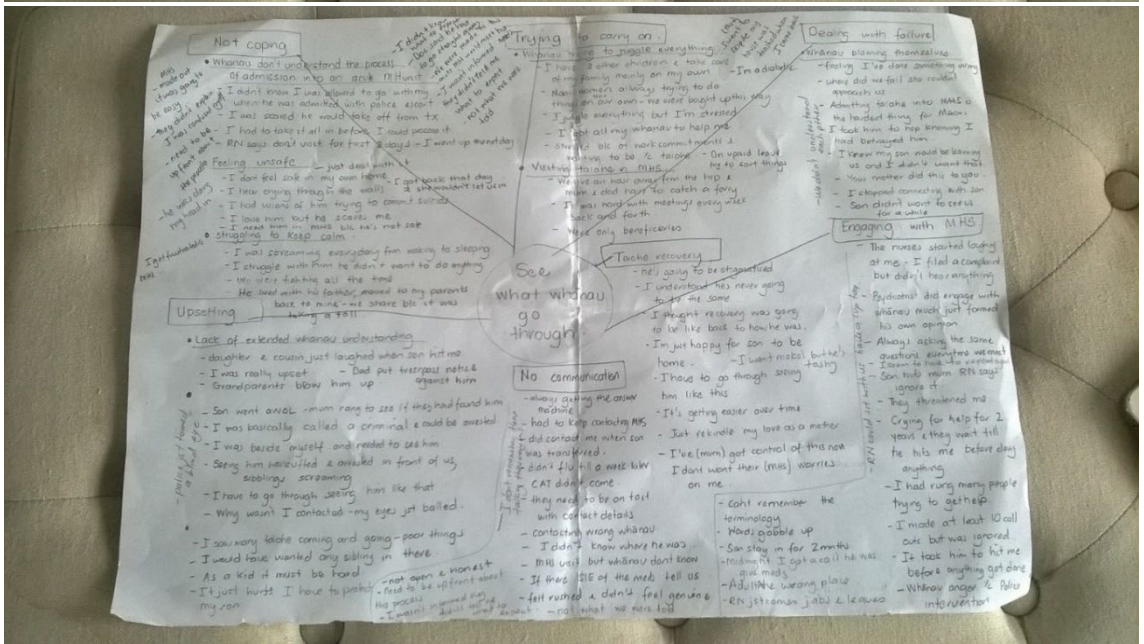 Not coping
• Whanau don't understand the process
of admission into an acute MH unit
- I didn't know I was allowed to go with my
when he was admitted with police escort
- I was scared he would take off from tx
- I had to take it all in before I could process it
- RN says don't visit for first 2 days - I went up next day
Feeling unsafe - just deal with it
- I don't feel safe in my own home
- I got back that day
& she wouldn't let us in
- I hear crying through the walls
- I had visions of him trying to commit suicide
- I love him but he scares me
- I need him in MHS b/c he's not safe
• Struggling to keep calm
- I was screaming everyday from waking to sleeping
- I struggle with him he didn't want to do anything
- We were fighting all the time
- He lived with his father, moved to my parents
back to mine - we share b/c it was
taking a toll
Upsetting
• Lack of extended whanau understanding
- daughter & cousin just laughed when son hit me
- I was really upset
- Dad put trespass notice
against him
- Grandparents blow him up
- Son went AWOL - mum rang to see if they had found him
- I was basically called a criminal & could be arrested
- I was beside myself and needed to see him
- Seeing him handcuffed & arrested in front of us,
siblings screaming
- I have to go through seeing him like that
- Why wasn't I contacted - my eyes just balled.
- police just turned
a blind eye
- I saw many taiohe coming and going - poor things
- I would have wanted any sibling in there
- As a kid it must be hard
- It just hurts I have to
my son
- not open & honest
- need to be upfront about
the process
Trying to carry on
• Whanau trying to juggle everything
- I have 2 other children & take care
of my family mainly on my own
- I'm a diabetic
- Maori women always trying to do
things on our own - we were bought up this way
- I juggle everything but I'm stressed
- I got all my whanau to help me
- b/c of work commitments &
wanting to be c taiohe
- On unpaid leave
try to sort things
• Visiting taiohe in MHS
- We live an hour away from the hosp &
mum & dad have to catch a ferry
- It was hard with meetings every week
back and forth
- We're only beneficiaries
See
what whanau
go
through
Taiohe recovery
- he's going to be stigmatised
- I understand he's never going
to be the same
- I thought recovery was going
to be like back to how he was.
- I'm just happy for son to be
home.
- I have to go through seeing
him like this
- It's getting easier over time
- Just rekindle my love as a mother
- I've (mum) got control of this now
I dont want their (MHS) worries
on me.
No communication
- always getting the answer
machine
- had to keep contacting MHS
- did contact me when son
was transferred.
- didn't f/u till a week later
- CAT didn't come.
- they need to be on foot
with contact details
- contacting wrong whanau
- I didn't know where he was
- MHS visit but whanau dont know
- If there S/E of the meds tell us
- felt rushed & didn't feel genuine
- not what we were told
- can't remember the
terminology
- Words gobble up
- Son stay in for 2 mnths
- midnight I got a call he was
give meds
- Adult the wrong place
- RN jst comes in jabs & leaves
Dealing with failure
• Whanau blaming themselves
- feeling I've done something wrong
- where did we fail she couldn't
approach us
- Admitting taiohe into MHS is
the hardest thing for Maori
- I took him to hosp knowing I
had betrayed him
- I knew my son would be leaving
us and I didn't want that
- Your mother did this to you
- I stopped connecting with son
- Son didn't want to see us
for a while
- We didn't understand
each other
Engaging with MHS
- The nurses started laughing
at me - I filed a complaint
but didn't hear anything
- Psychiatrist did engage with
whanau much just formed
his own opinion
- Always asking the same
questions everytime we meet
- Son told mum RN says
ignore it
- They threatened me
- Crying for help for 2
years & they wait till
he hits me before doing
anything
- I had rung many people
trying to get help.
- I made at least 10 call
outs but was ignored
- It took him to hit me
before anything got done
- Whanau anger & Police
intervention